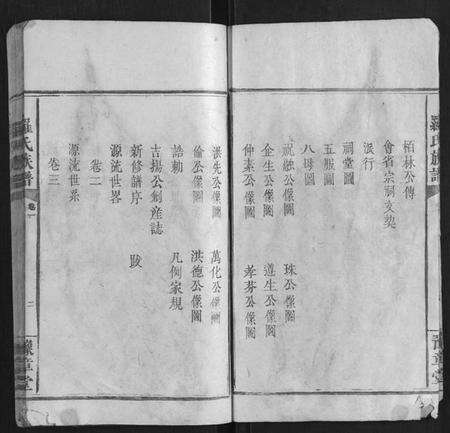 羅氏族譜
豫章堂
栢林公傳
會省宗祠文契
派行
祠堂圖
五服圖
八母圖
祝融公像圖 珠公像圖
企生公像圖 遵生公像圖
仲素公像圖 孝芬公像圖
洪先公像圖 萬化公像圖
倫公像圖 洪德公像圖
誥勅 凡例家規
吉揚公創産誌
新修譜序 跋
源流世畧
卷二
源流世系
卷三
羅氏族譜
卷一
二
豫章堂